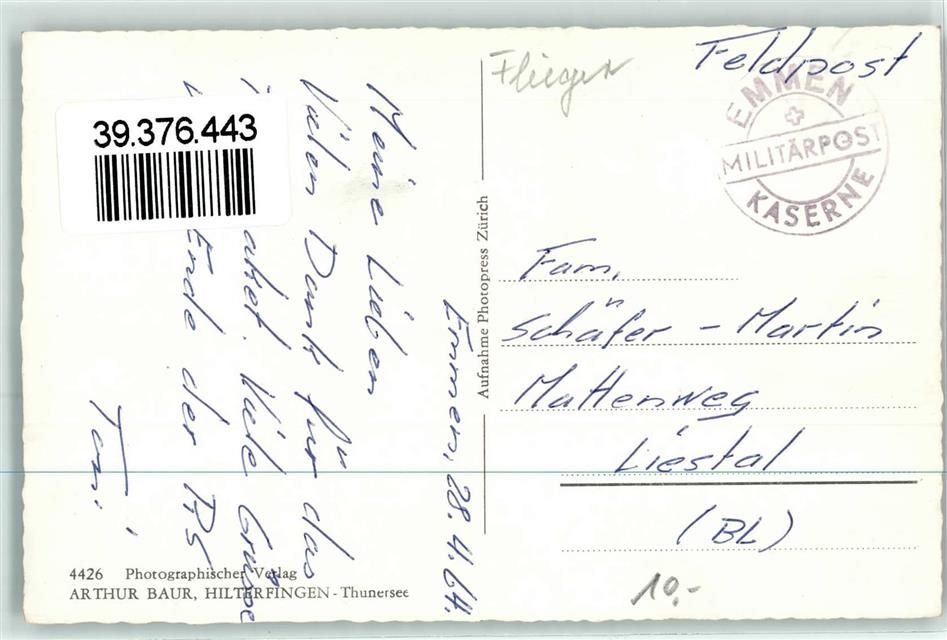 Flieger
Feldpost
EMMEN
MILITÄRPOST
KASERNE
39.376.443
Emmen, 28.4.64.
Meine Lieben
Vielen Dank für das
Viele Grüsse
Ende der RS
Toni
Aufnahme Photopress Zürich
Fam.
Schäfer - Martin
Mattenweg
Liestal
(BL)
10.-
4426 Photographischer Verlag
ARTHUR BAUR, HILTERFINGEN - Thunersee